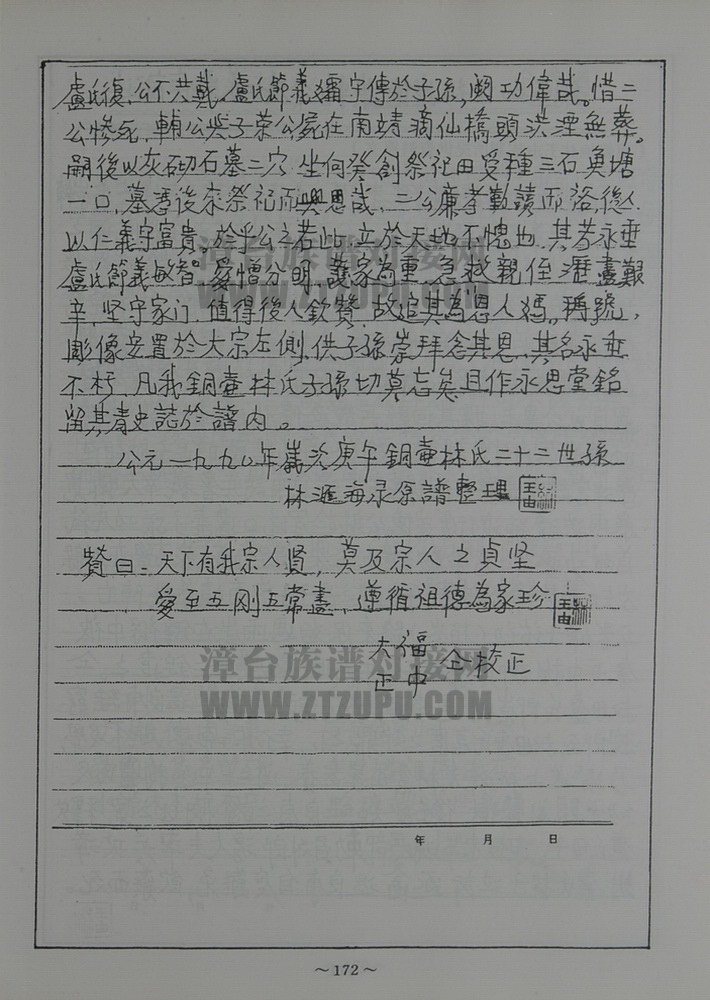 盧氏復,公不共戴。盧氏節義 守傳於子孫,闕功偉哉。惜二
公慘死,輔公與子荣公屍在南靖滴仙橋頭洪湮無葬。
嗣後以灰砌石墓二穴 坐向癸創祭祀田受種三石奐塘
一口,墓 後來祭祀而興思哉,三公廉孝勤讀而 後人
以仁義守富貴,於乎公之若此,立於天地不愧也,其若永垂
盧氏節義敏智。愛憎分明,護家為重,急 親侄 盡艱
辛,坚守家门,值得後人欽贊,故追其為恩人媽。稱號,
彫像安置於大宗左側,供子孫崇拜念其恩,其名永垂
不朽,凡我銅壺林氏子孫切莫忘矣且作永恩堂銘
留其青史誌於譜内。
公元一九九〇年歲次庚午銅壺林氏二十二世孫
林滙海录原譜整理
贊曰:天下有我宗人贤,莫及宗人之貞坚
愛至五刚五常盡,遵循祖德為家珍
大福
正中 仝校正
漳台族谱对接网
WWW.ZTZUPU.COM
漳台族谱对接网
WWW.ZTZUPU.COM
年 月 日
～172～